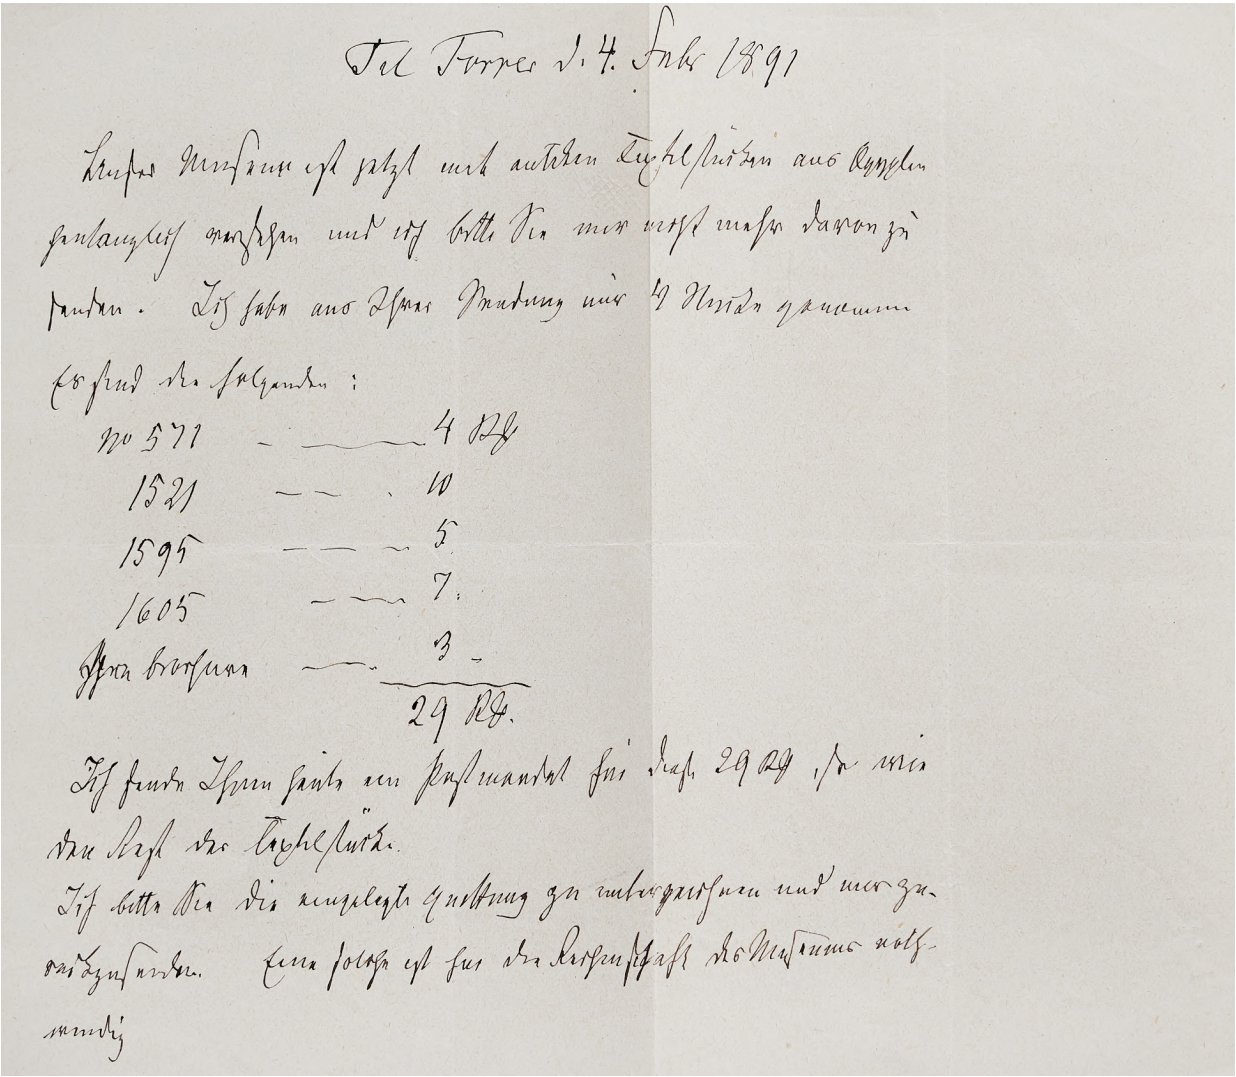 Tit Forrer d. 4. Febr 1891
Unser Museum ist jetzt mit antiken Textilstücken aus Egypten
henlänglich versehen und ich bitte Sie mir nicht mehr davon zu
senden. Ich habe aus Ihrer Sendung nur 4 Stücke genommen
Es sind die folgenden:
No 571 - — 4 RM
1521 — — . 10
1595 — — - 5
1605 — — 7.
Ihre brochure — . 3 -
29 RM.
Ich sende Ihnen heute ein Postmandat für diese 29 RM, so wie
den Rest der Textilstücke.
Ich bitte Sie die eingelegte Quittung zu unterzeichnen und mir zu-
rückzusenden. Eine solche ist für die Rechenschaft des Museums noth-
wendig